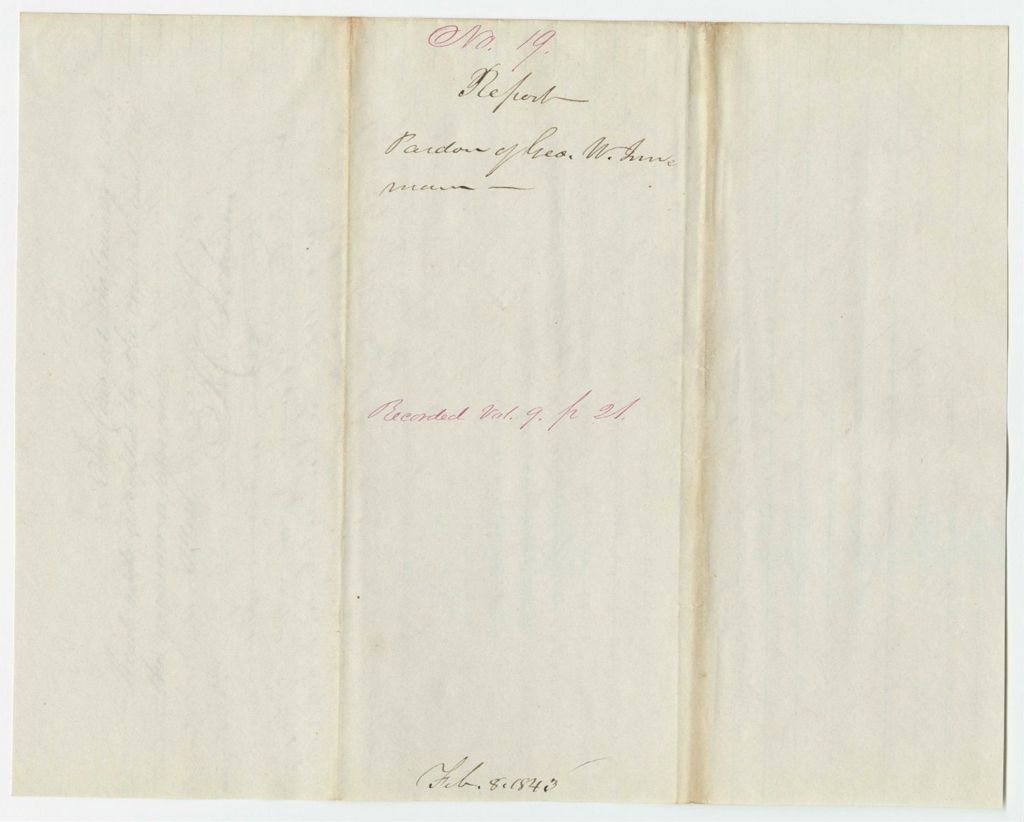 No. 19.
Report
Pardon of Geo. W.
mann —
Recorded Vol. 9. p 21.
Feb. 8. 1843